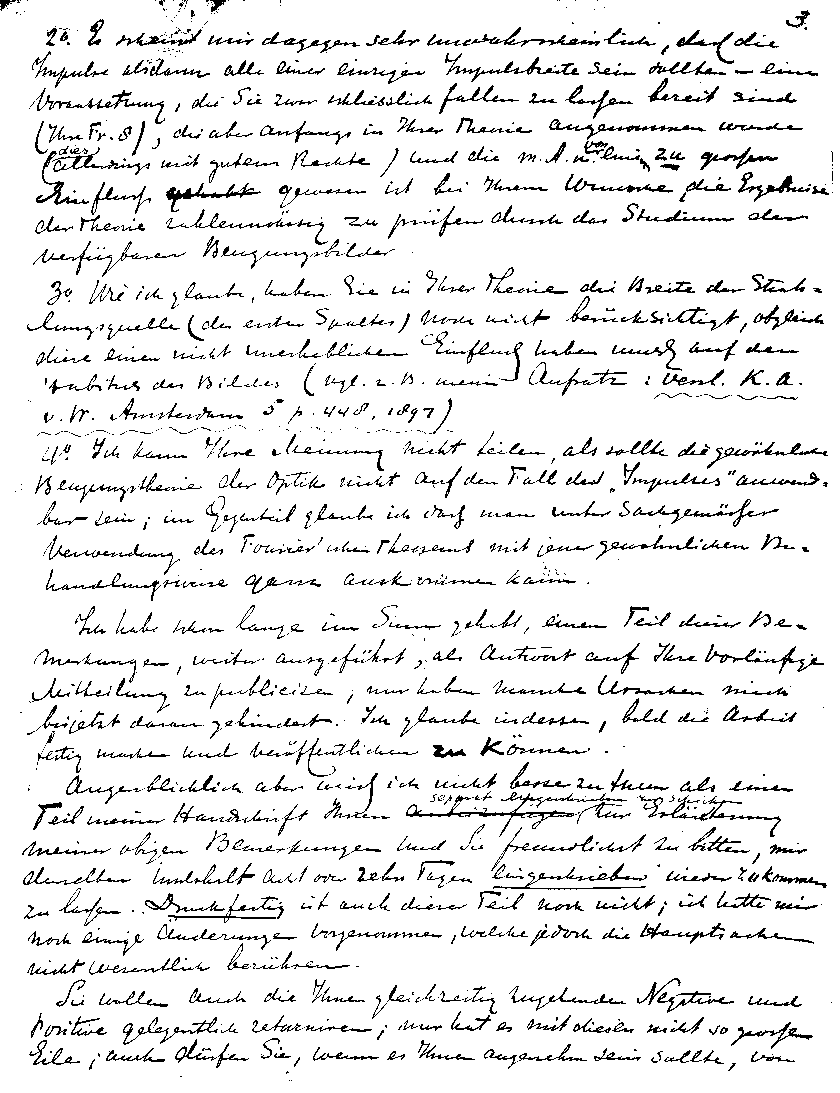 3.
2º. Es scheint mir dagegen sehr unwahrscheinlich, dass die
Impulse alsdann alle einer einzigen Impulsbreite sein sollten – eine
Voraussetzung, die Sie zwar schliesslich fallen zu lassen bereit sind
(Ihre Fr. 8), die aber anfangs in Ihrer Theorie angenommen wurde
(dies allerdings mit gutem Rechte) und die m. A. n. von zu grossem
Einfluss gehabt gewesen ist bei Ihrem Wunsche die Ergebnisse
der Theorie zahlenmässig zu prüfen durch das Studium der
verfügbaren Beugungsbilder.
3º. Wie ich glaube, haben Sie in Ihrer Theorie die Breite der Strah-
lungsquelle (des ersten Spaltes) noch nicht berücksichtigt, obgleich
diese einen nicht unerheblichen Einfluss haben muss auf den
Habitus des Bildes (vgl. z. B. mein Aufsatz: Versl. K. A.
v. W. Amsterdam 5 p. 448, 1897)
4º. Ich kann Ihre Meinung nicht teilen, als sollte die gewöhnliche
Beugungstheorie der Optik nicht auf den Fall des „Impulses" anwend-
bar sein; im Gegenteil glaube ich dass man unter Sachgemässer
Verwendung des Fourier'schen Theorems mit jener gewöhnlichen Be-
handlungsweise ganz auskommen kann.
Ich habe schon lange im Sinn gehabt, einen Teil dieser Be-
merkungen, weiter ausgeführt, als Antwort auf Ihre Vorläufige
Mitteilung zu publiciren, nur haben manche Ursachen mich
bis jetzt daran gehindert. Ich glaube indessen, bald die Arbeit
fertig machen und veröffentlichen zu können.
Augenblicklich aber weiss ich nicht besser zu thun als einen
separat eingeschrieben zu schicken
Teil meiner Handschrift Ihnen zur Erläuterung
meiner obigen Bemerkungen und Sie freundlichst zu bitten, mir
denselben innerhalb acht oder zehn Tagen eingeschrieben wieder zukommen
zu lassen. Druckfertig ist auch dieser Teil noch nicht; ich hätte nur
noch einige Änderungen vorgenommen, welche jedoch die Hauptsachen
nicht wesentlich berühren.
Sie wollen auch die Ihnen gleichzeitig zugehenden Negative und
Positive gelegentlich retourniren; nur hat es mit diesen nicht so grosse
Eile; auch dürfen Sie, wenn es Ihnen angenehm sein sollte, von